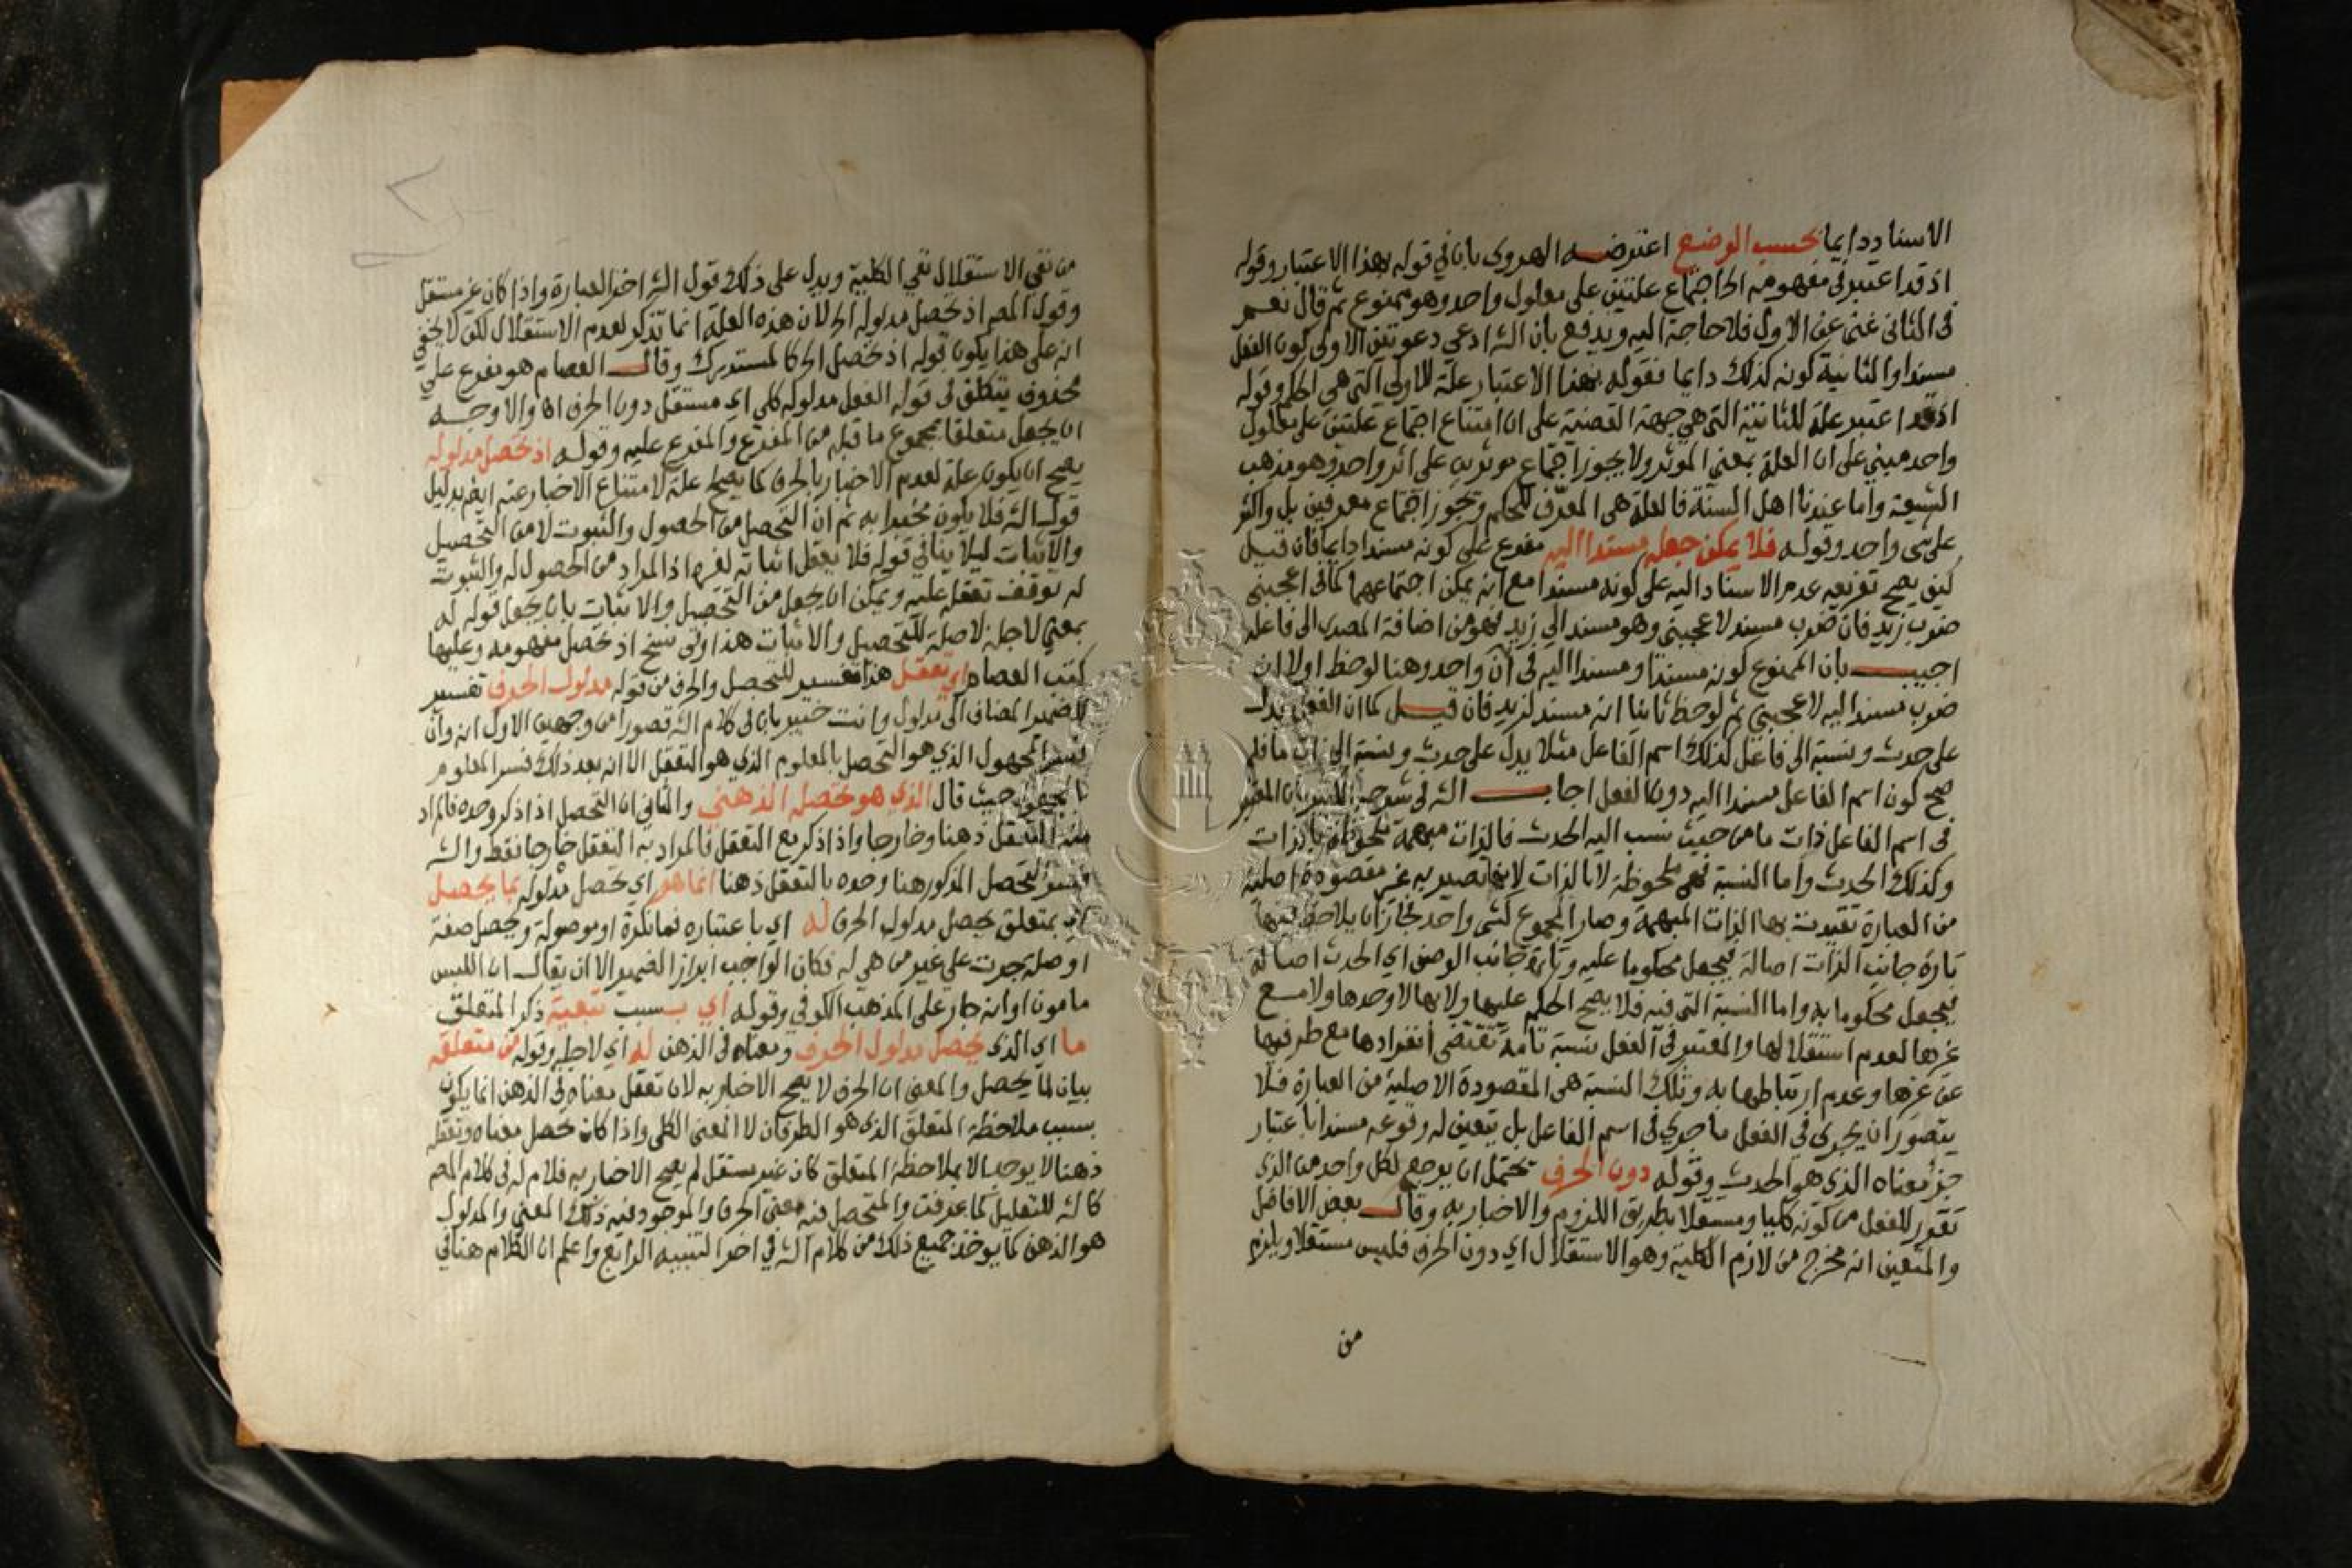 الاسناد دايما بحسب الوضع اعترضه الهروي بان في قوله بهذا الاعتبار وقوله
اذ قد اعتبر في مفهومه الخ اجتماع علتين على معلول واحد وهو ممنوع ثم قال نعم
في الثاني غني عن الاول فلا حاجة اليه ويدفع بان الشه ادعي دعوتين الاولى كون الفعل
مسندا والثانية كونه كذلك دايما فقوله بهذا الاعتبار علة للاولى التي هي الحكم وقوله
اذ قد اعتبر علة للثانية التي هي جهة القضية على ان امتناع اجتماع علتين على معلول
واحد مبني على ان العلة بمعنى الموثر ولا يجوز اجتماع موثرين على اثر واحد وهو مذهب
الشيعة واما عندنا اهل السنة فالعلة هي المعرّف للحكم ويجوز اجتماع معرفين بل واكثر
على شى واحد وقوله فلا يمكن جعله مسندا اليه مفرع على كونه مسندا دايما فان قيل
كيف يصح تفريعه عدم الاسناد اليه على كونه مسندا مع انه يمكن اجتماعهما كما في اعجبني
ضرب زيد فان ضرب مسند لاعجبني وهو مسند الي زيد فهو من اضافة المصدر الى فاعله
اجيب بان الممنوع كونه مسندا ومسندا اليه في آن واحد وهنا لوحظ اولا ان
ضرب مسند اليه لاعجبني ثم لوحظ ثانيا انه مسند لزيد فان قيل كما ان الفعل يدل
على حدث ونسبة الى فاعل كذلك اسم الفاعل مثلا يدل على حدث ونسبة الى ذات ما فلم
صح كون اسم الفاعل مسندا اليه دون الفعل اجاب الشه في شرحه بان المعتبر
في اسم الفاعل ذات ما من حيث نسب اليه الحدث فالذات مبهمة ملحوظة بالذات
وكذلك الحدث واما النسبة فهي ملحوظة لا بالذات لانها تصير به غير مقصودة اصلية
من العبارة تقيدت بها الذات المبهمة وصار المجموع كشى واحد فجاز ان يلاحظ فيها
تارة جانب الذات اصالة فيجعل محكوما عليه وتارة جانب الوصف اي الحدث اصالة
فيجعل محكوما به واما النسبة التي فيه فلا يصح الحكم عليها ولا بها لا وحدها ولا مع
غيرها لعدم استقلالها والمعتبر في الفعل نسبة تامة تقتضى انفرادها مع طرفيها
عن غيرها وعدم ارتباطها به وتلك النسبة هي المقصودة الاصلية من العبارة فلا
يتصور ان يجري في الفعل ما جري في اسم الفاعل بل يتعين له وقوعه مسندا باعتبار
جزء معناه الذي هو الحدث وقوله دون الحرف يحتمل ان يرجع لكل واحد من الذي
تقرر للفعل من كونه كليا ومستقلا بطريق اللزوم والاخبار به وقال بعض الافاضل
والمتعين انه مخرج من لازم الكلية وهو الاستقلال اي دون الحرف فليس مستقلا ويلزم
من
من نفي الاستقلال نفي الكلية ويدل على ذلك قول الشه اخر العبارة واذا كان غير مستقل
وقول المص اذ تحصل مدلوله الخ لان هذه العلة انما تذكر لعدم الاستقلال لكن لا يخفي
انه على هذا يكون قوله اذ تحصل الخ كالمستدرك وقال العصام هو مفرع علي
محذوف يتعلق في قوله الفعل مدلوله كلي اي مستقل دون الحرف اه والاوجه
ان يجعل متعلقا بمجموع ما قبله من المفرع والمفرع عليه وقوله اذ تحصل مدلوله
يصح ان يكون علة لعدم الاخبار بالحرف كما يصح علة لامتناع الاخبار عنه ايض بدليل
قول الشه فلا يكون مخبرا به ثم ان التحصل من الحصول والثبوت لا من التحصيل
والاثبات ليلا ينافي قوله فلا يعقل اثباته لغيره اذ المراد من الحصول له والثبوت
له توقف تعقله عليه ويمكن ان يجعل من التحصيل والاثبات بان يجعل قوله له
بمعنى لاجله لا صلة للتحصيل والاثبات هذا وفي نسخ اذ تحصل مفهومه وعليها
كتب العصام اي تعقل هذا تفسير للتحصل والحرف من قوله مدلول الحرف تفسير
للضمير المضاف الى مدلول وانت خبير بان في كلام الشه قصورا من وجهين الاول انه وان
فسر المجهول الذي هو التحصل بالمعلوم الذي هو التعقل الا انه بعد ذلك فسر المعلوم
بالمجهول حيث قال الذي هو تحصله الذهني والثاني ان التحصل اذا ذكر وحده فالمراد
منه التعقل ذهنا وخارجا واذا ذكر مع التعقل فالمراد به التعقل خارجا فقط والشه
فسر التحصل المذكور هنا وحده بالتعقل ذهنا انما هو اي تحصل مدلوله بما يحصل
اي بمتعلق يحصل مدلول الحرف له اي باعتباره فما نكرة او موصولة ويحصل صفة
او صلة جرت على غير من هي له فكان الواجب ابراز الضمير الا ان يقال ان اللبس
مامون او انه جار على المذهب الكوفي وقوله اي بسبب تبعية ذكر المتعلق
ما اي الذي يحصل مدلول الحرف ومعناه في الذهن له اي لاجله وقوله من متعلقه
بيان لما يحصل والمعنى ان الحرف لا يصح الاخبار به لان تعقل معناه في الذهن انما يكون
بسبب ملاحظة المتعلق الذي هو الطرفان لا المعنى الكلي واذا كان تحصل معناه وتعقله
ذهنا لا يوجد الا بملاحظة المتعلق كان غير مستقل لم يصح الاخبار به فلام له في كلام المص
كالشه للتعليل كما عرفت والمتحصل فيه معنى الحرف والموجود فيه ذلك المعنى والمدلول
هو الذهن كما يوخذ جميع ذلك من كلام الشه في اخر التنبيه الرابع واعلم ان الكلام هنا في